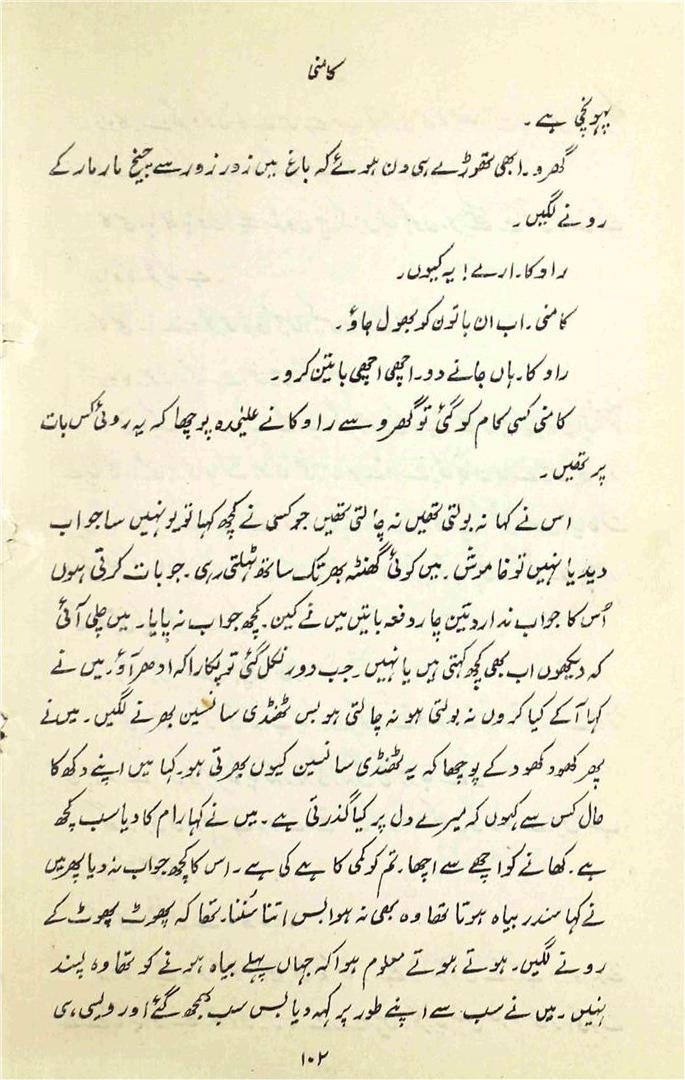 کامنی
پہونچی ہے۔
گھرو۔ ابھی تھوڑے ہی دن ہوئے کہ باغ میں زور زور سے چیخ مار مار کے
رونے لگیں۔
راوکا۔ ارے! یہ کیوں۔
کامنی۔ اب ان باتون کو بھول جاؤ۔
راوکا۔ ہاں جانے دو۔ اچھی اچھی باتین کرو۔
کامنی کسی کام کو گئی تو گھرو سے راوکا نے علیٰحدہ پوچھا کہ یہ روئی کس بات
پر تھیں۔
اس نے کہا نہ بولتی تھیں نہ چالتی تھیں جو کسی نے کچھ کہا تو یونہیں سا جواب
دیدیا نہیں تو خاموش۔ میں کوئی گھنٹہ بھر تک ساتھ ٹہلتی رہی۔ جو بات کرتی ہوں
اُس کا جواب ندارد تین چار دفعہ باتیں میں نے کین۔ کچھ جواب نہ پایا۔ میں چلی آئی
کہ دیکھوں اب بھی کچھ کہتی ہیں یا نہیں۔ جب دور نکل گئی تو پکارا کہ ادھر آؤ۔ میں نے
کہا آکے کیا کروں نہ بولتی ہو نہ چالتی ہو بس ٹھنڈی سانسین بھرنے لگیں۔ میں نے
پھر کھود کھود کے پوچھا کہ یہ ٹھنڈی سانسین کیوں بھرتی ہو۔ کہا میں اپنے دکھ کا
حال کس سے کہوں کہ میرے دل پر کیا گذرتی ہے۔ میں نے کہا رام کا دیا سب کچھ
ہے۔ کھانے کو اچھے سے اچھا۔ تم کو کمی کاہے کی ہے۔ اس کا کچھ جواب نہ دیا پھر میں
نے کہا سندر بیاہ ہوتا تھا وہ بھی نہ ہوا بس اتنا سُننا۔ تھا کہ پھوٹ پھوٹ کے
رونے لگیں۔ ہوتے ہوتے معلوم ہوا کہ جہاں پہلے بیاہ ہونے کو تھا وہ پسند
نہیں۔ میں نے سب سے اپنے طور پر کہہ دیا بس سب سمجھ گئے اور ویسی ہی
۱۰۲